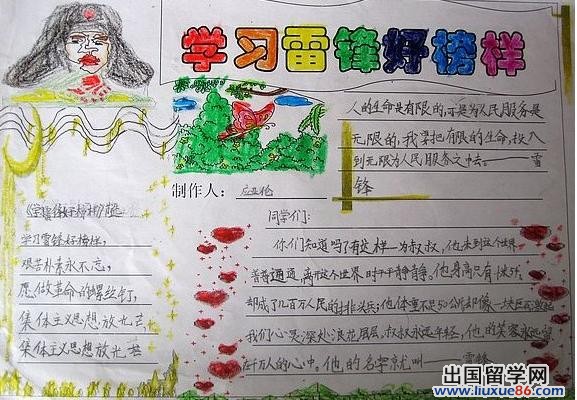 学习雷锋好榜样
人的生命是有限的,可是为人民服务是
无限的,我要把有限的生命,投入
到无限为人民服务之中去。——雷
锋
制作人:
《学习雷锋好榜样》
学习雷锋好榜样,
艰苦朴素永不忘,
愿做革命的螺丝钉,
集体主义思想放光芒
集体主义思想放光芒
同学们:
你们知道吗?有这样一为叔叔,他来到这个世界
普普通通,离开这个世界时平平静静。他身高只有1米54,
却成了几百万人民的排头兵;他体重不足50公斤却像一块巨石激起
我们心灵深处浪花层层,叔叔永远年轻,他的笑容永远留
在千万人的心中。他的名字就叫——雷锋
出国留学网
www.liuxue86.com